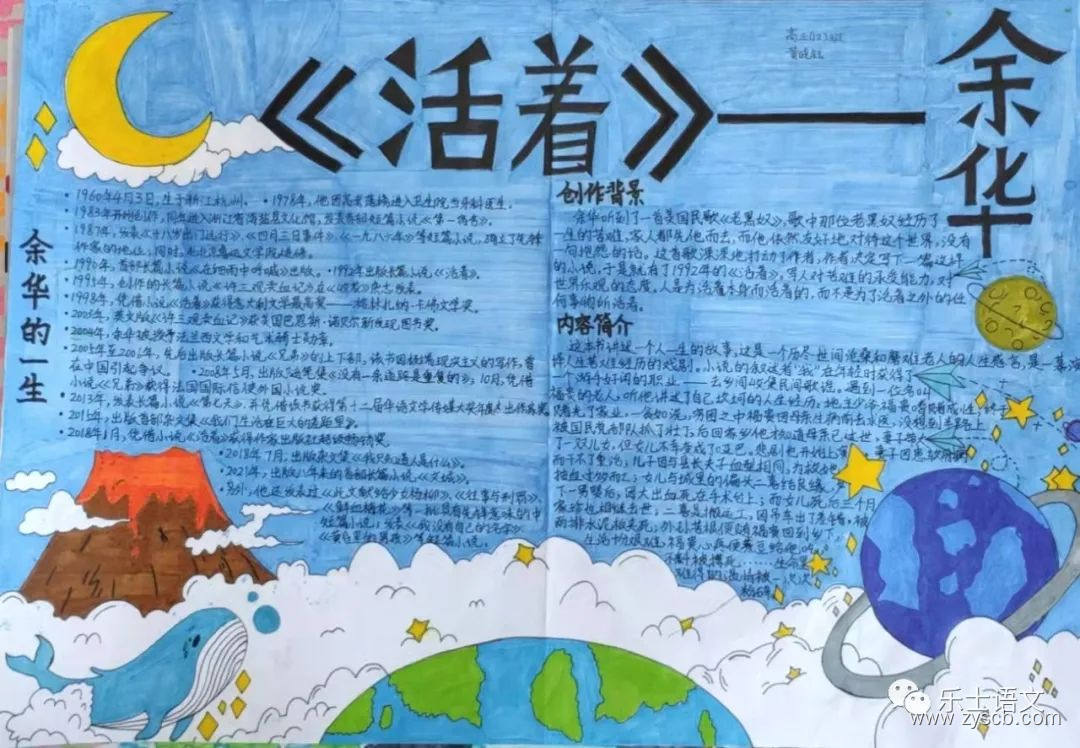 《活着》——余华
余华的一生
• 1960年4月3日,生于浙江杭州。 • 1978年,他因高考落榜进入卫生院当牙科医生。
• 1983年开始创作,同年进入浙江省海盐县文化馆,发表首部短篇小说《第一宿舍》。
• 1987年,发表《十八岁出门远行》、《四月三日事件》、《一九八六年》等短篇小说,确立了先锋
作家的地位;同时,
• 1990年,首部长篇小说《在细雨中呼喊》出版。 • 1992年出版长篇小说《活着》。
• 1995年,创作的长篇小说《许三观卖血记》在《收获》杂志发表。
• 1998年,凭借小说《活着》获得意大利文学最高奖——格林扎纳·卡佛文学奖。
• 2003年,英文版《许三观卖血记》获美国巴恩斯·诺贝尔新发现图书奖。
• 2004年,余华被授予法兰西文学和艺术骑士勋章。
• 2005年至2006年,先后出版长篇小说《兄弟》的上下部,该书因极端现实主义的写作,曾
在中国引起争议。 • 2008年5月,出版随笔集《没有一条道路是重复的》;10月,凭借
小说《兄弟》获得法国国际信使外国小说奖。
• 2013年,发表长篇小说《第七天》,并凭借该书获得第十二届华语文学传媒大奖年度杰出作家奖
• 2015年,出版首部杂文集《我们生活在巨大的差距里》。
• 2018年1月,凭借小说《活着》获得作家出版社超级畅销奖。
• 2018年7月,出版杂文集《我只知道人是什么》。
• 2021年,出版八年来的首部长篇小说《文城》。
• 另外,他还发表过《此文献给少女杨柳》、《往事与刑罚》、
《鲜血梅花》等一批具有先锋意味的中
短篇小说;发表《我没有自己的名字》
《黄昏里的男孩》等短篇小说。
创作背景
余华听到了一首美国民歌《老黑奴》,歌中那位老黑奴经历了
一生的苦难,家人都先他而去,而他依然友好地对待这个世界,没有
一句抱怨的话。这首歌深深地打动了作者,作者决定写下一篇这样
的小说,于是就有了1992年的《活着》。写人对苦难的承受能力,对
世界乐观的态度。人是为活着本身而活着的,而不是为了活着之外的任
何事物所活着。
内容简介
这本书讲述一个人一生的故事,这是一个历尽世间沧桑和磨难老人的人生感言,是一幕演
绎人生苦难经历的戏剧。小说的叙述者“我”在年轻时获得了
一个游手好闲的职业——去乡间收集民间歌谣。遇到一位名叫
福贵的老人,听他讲述了自己坎坷的人生经历:地主少爷福贵嗜赌成性,终于
赌光了家业,一贫如洗,穷困之中福贵因母亲生病前去求医,没想到半路上
被国民党部队抓了壮丁,后回家乡他才知道母亲已过世,妻子带大
了一双儿女,但女儿不幸变成了哑巴。悲剧也开始上演,妻子因患软骨病
而干不了重活;儿子因与县长夫子血型相同,为救她
抽血过多而亡;女儿与城里的偏头二喜结良缘,
下一男婴后,因大出血死在手术台上;而女儿死后三个月
家珍也相继去世;二喜是搬运工,因吊车出了差错,被
两排水泥板夹死;外孙苦根便随福贵回到乡下,
生活十分艰难,福贵心疼便煮豆给他吃,
乐士语文
www.zyscb.com